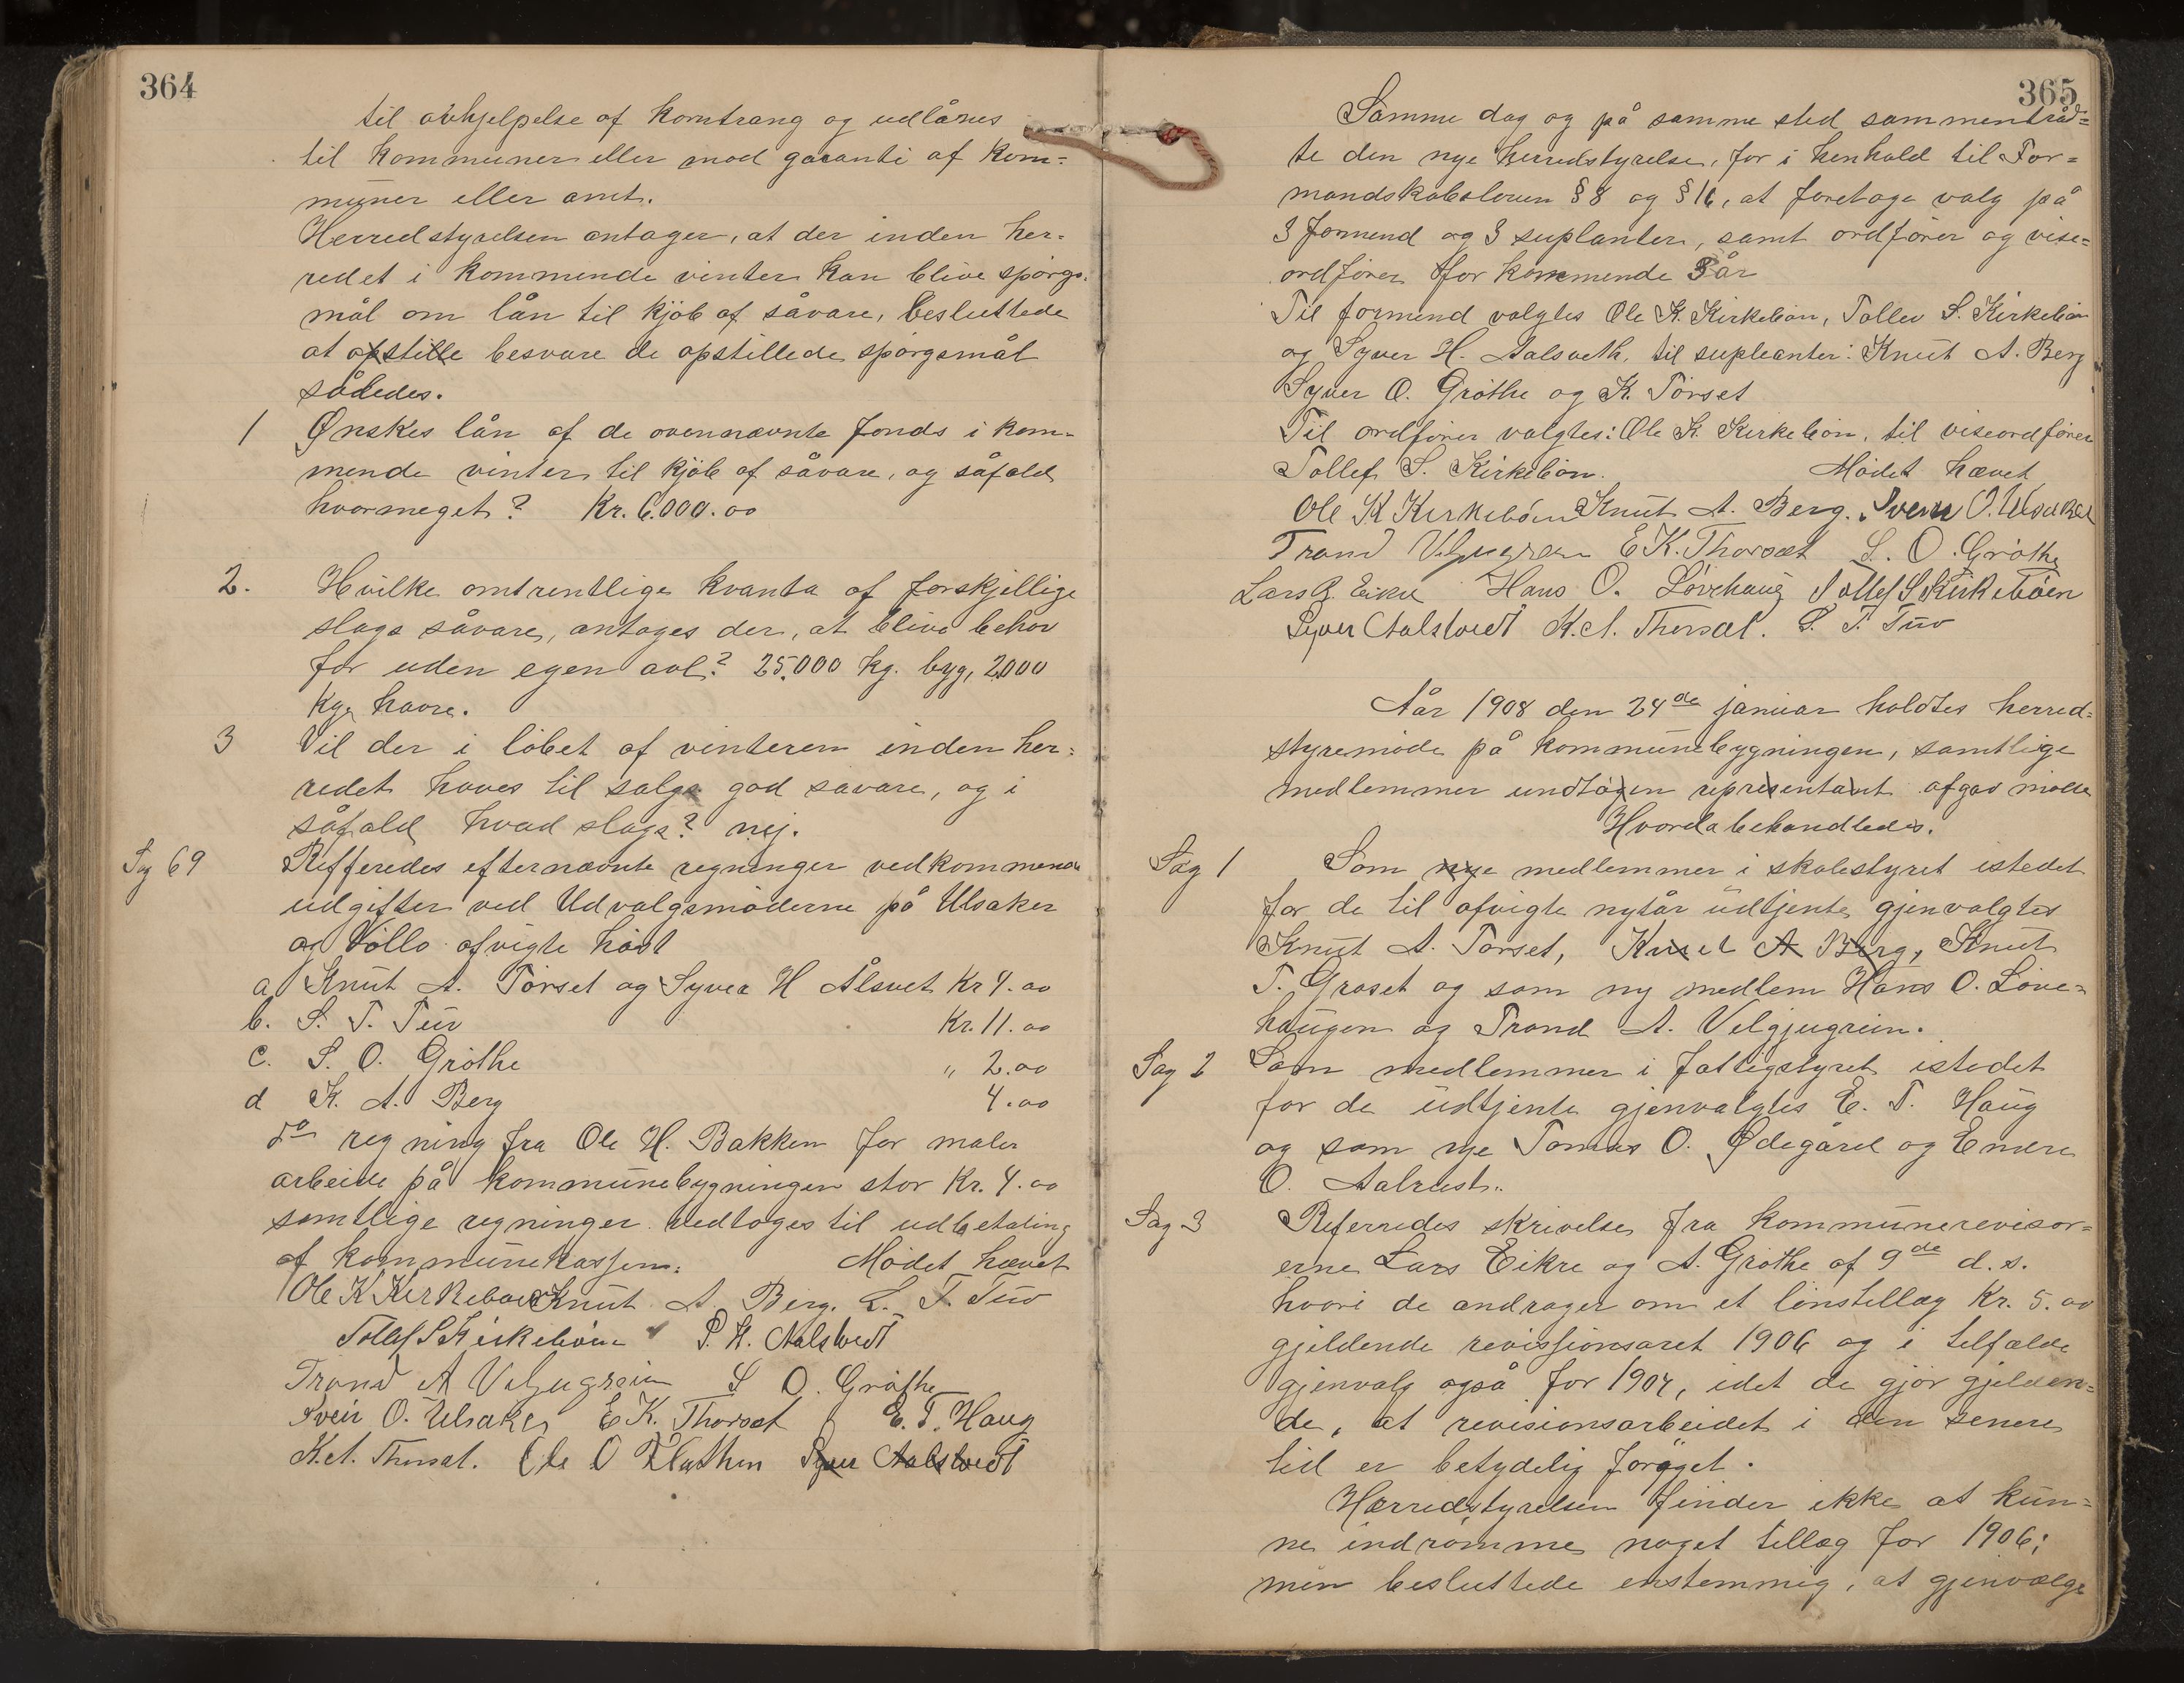 364
til avhjelpelse af korntrang og udlånes
til kommuner eller mod garanti af kom=
muner eller amt.
Herredstyrelsen antager, at der inden her=
redet i kommende vinter kan blive spörgs=
mål om lån til kjöb af såvare, besluttede
at opstille besvare de opstillede spörgsmål
således.
1 Ønskes lån af de ovennævnte fonds i kom-
mende vinter til kjöb af såvare, og såfald
hvormeget? Kr. 6.000.00
2. Hvilke omtrentlige kvanta af forskjellige
slags såvare, antages der, at blive behov
for uden egen avl? 25.000 kg. byg, 2000
kg. havre.
3 Vil der i löbet af vinteren inden her=
redet haves til salgs god såvare, og i
såfald hvad slags? nej.
Sag 69 Refferedes efternævnte regninger vedkommende
udgifter ved Udvalgsmöderne på Ulsaker
og Völlo afvigte höst
a Knut A. Törset og Syver H Ålsvet Kr 4.00
b. S. T. Tuv Kr. 11.00
c. S. O. Gröthe " 2.00
d K. A. Berg 4.00
do regning fra Ole H. Bakken for maler
arbeide på kommunebygningen stor Kr. 4.00
samtlige regninger vedtoges til udbetaling
af kommunekassen. Mödet hævet
Ole K Kirkeböen Knut A. Berg. S. T. Tuv
Tollef S Kirkeböen S. H. Aalstvedt
Trond A Veljugrein S O. Gröthe
Svein O. Ulsaker E K. Thorset E. T. Haug
K. A. Thorset. Ole O Flathen Syver Aalstvedt
365
Samme dag og på samme sted sammentråd=
te den nye herredstyrelse, for i henhold til For=
mandskabsloven § 8 og § 16, at foretage valg på
3 formend og 3 suplanter, samt ordförer og vise=
ordförer for kommende 3 år
Til formend valgtes Ole K. Kirkeböen, Tollev S. Kirkeböen
og Syver H. Aalsveth, til supleanter: Knut A. Berg
Syver O. Gröthe og K. Törset
Til ordförer valgtes: Ole K. Kirkeböen, til viseordförer
Tollef S. Kirkeböen. Mödet hævet
Ole K Kirkeböen Knut A. Berg. Svein O. Ulsaker
Trond Veljugrein E K. Thorset S. O. Gröthe
Lars R. Eikre Hans O. Lövehaug Tollef S Kirkeböen
Syver Aalstvedt K. A. Thorset. S. T. Tuv
Aår 1908 den 24de januar holdtes herred=
styremöde på kommunebygningen, samtlige
medlemmer undtagen representant afgav möde
Hvorda behandledes.
Sag 1 Som nye medlemmer i skolestyret istedet
for de til afvigte nytår udtjente gjenvalgtes
Knut A. Törset, Knut A Berg, Knut
T. Graset og som ny medlem Hans O. Löve=
haugen og Trond A. Velgjugrein.
Sag 2 Som medlemmer i fattigstyret istedet
for de udtjente gjenvalgtes E. T. Haug
og som nye Tomas O. Ødegård og Endre
O. Aalrust.
Sag 3 Referredes skrivelse fra kommunerevisor=
erne Lars Eikre og A. Gröthe af 9de d. s.
hvori de andrager om et lönstillæg Kr. 5.00
gjeldende revissionsaret 1906 og i tilfælde
gjenvalg også for 1907, idet de gjör gjelden=
de, at revisionsarbeidet i den senere
tid er betydelig foröget.
Herredstyrelsen finder ikke at kun=
ne indrömme noget tillæg for 1906;
men besluttede enstemmig, at gjenvælge